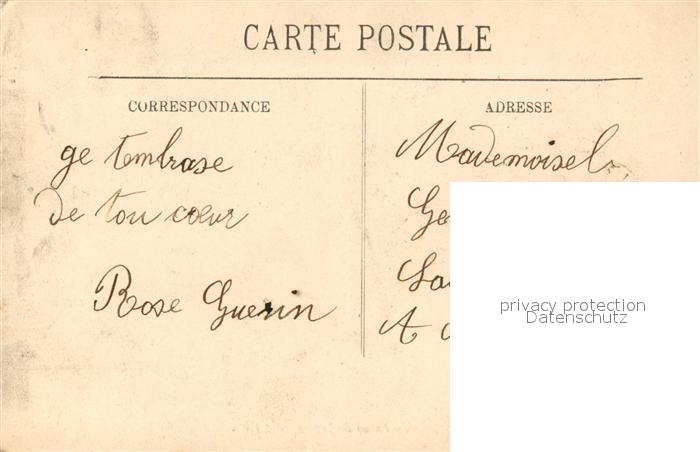 CARTE POSTALE
CORRESPONDANCE
ge tembrase
de tou cœur
Rose Guerin
ADRESSE
Mademoisel
privacy protection
Datenschutz